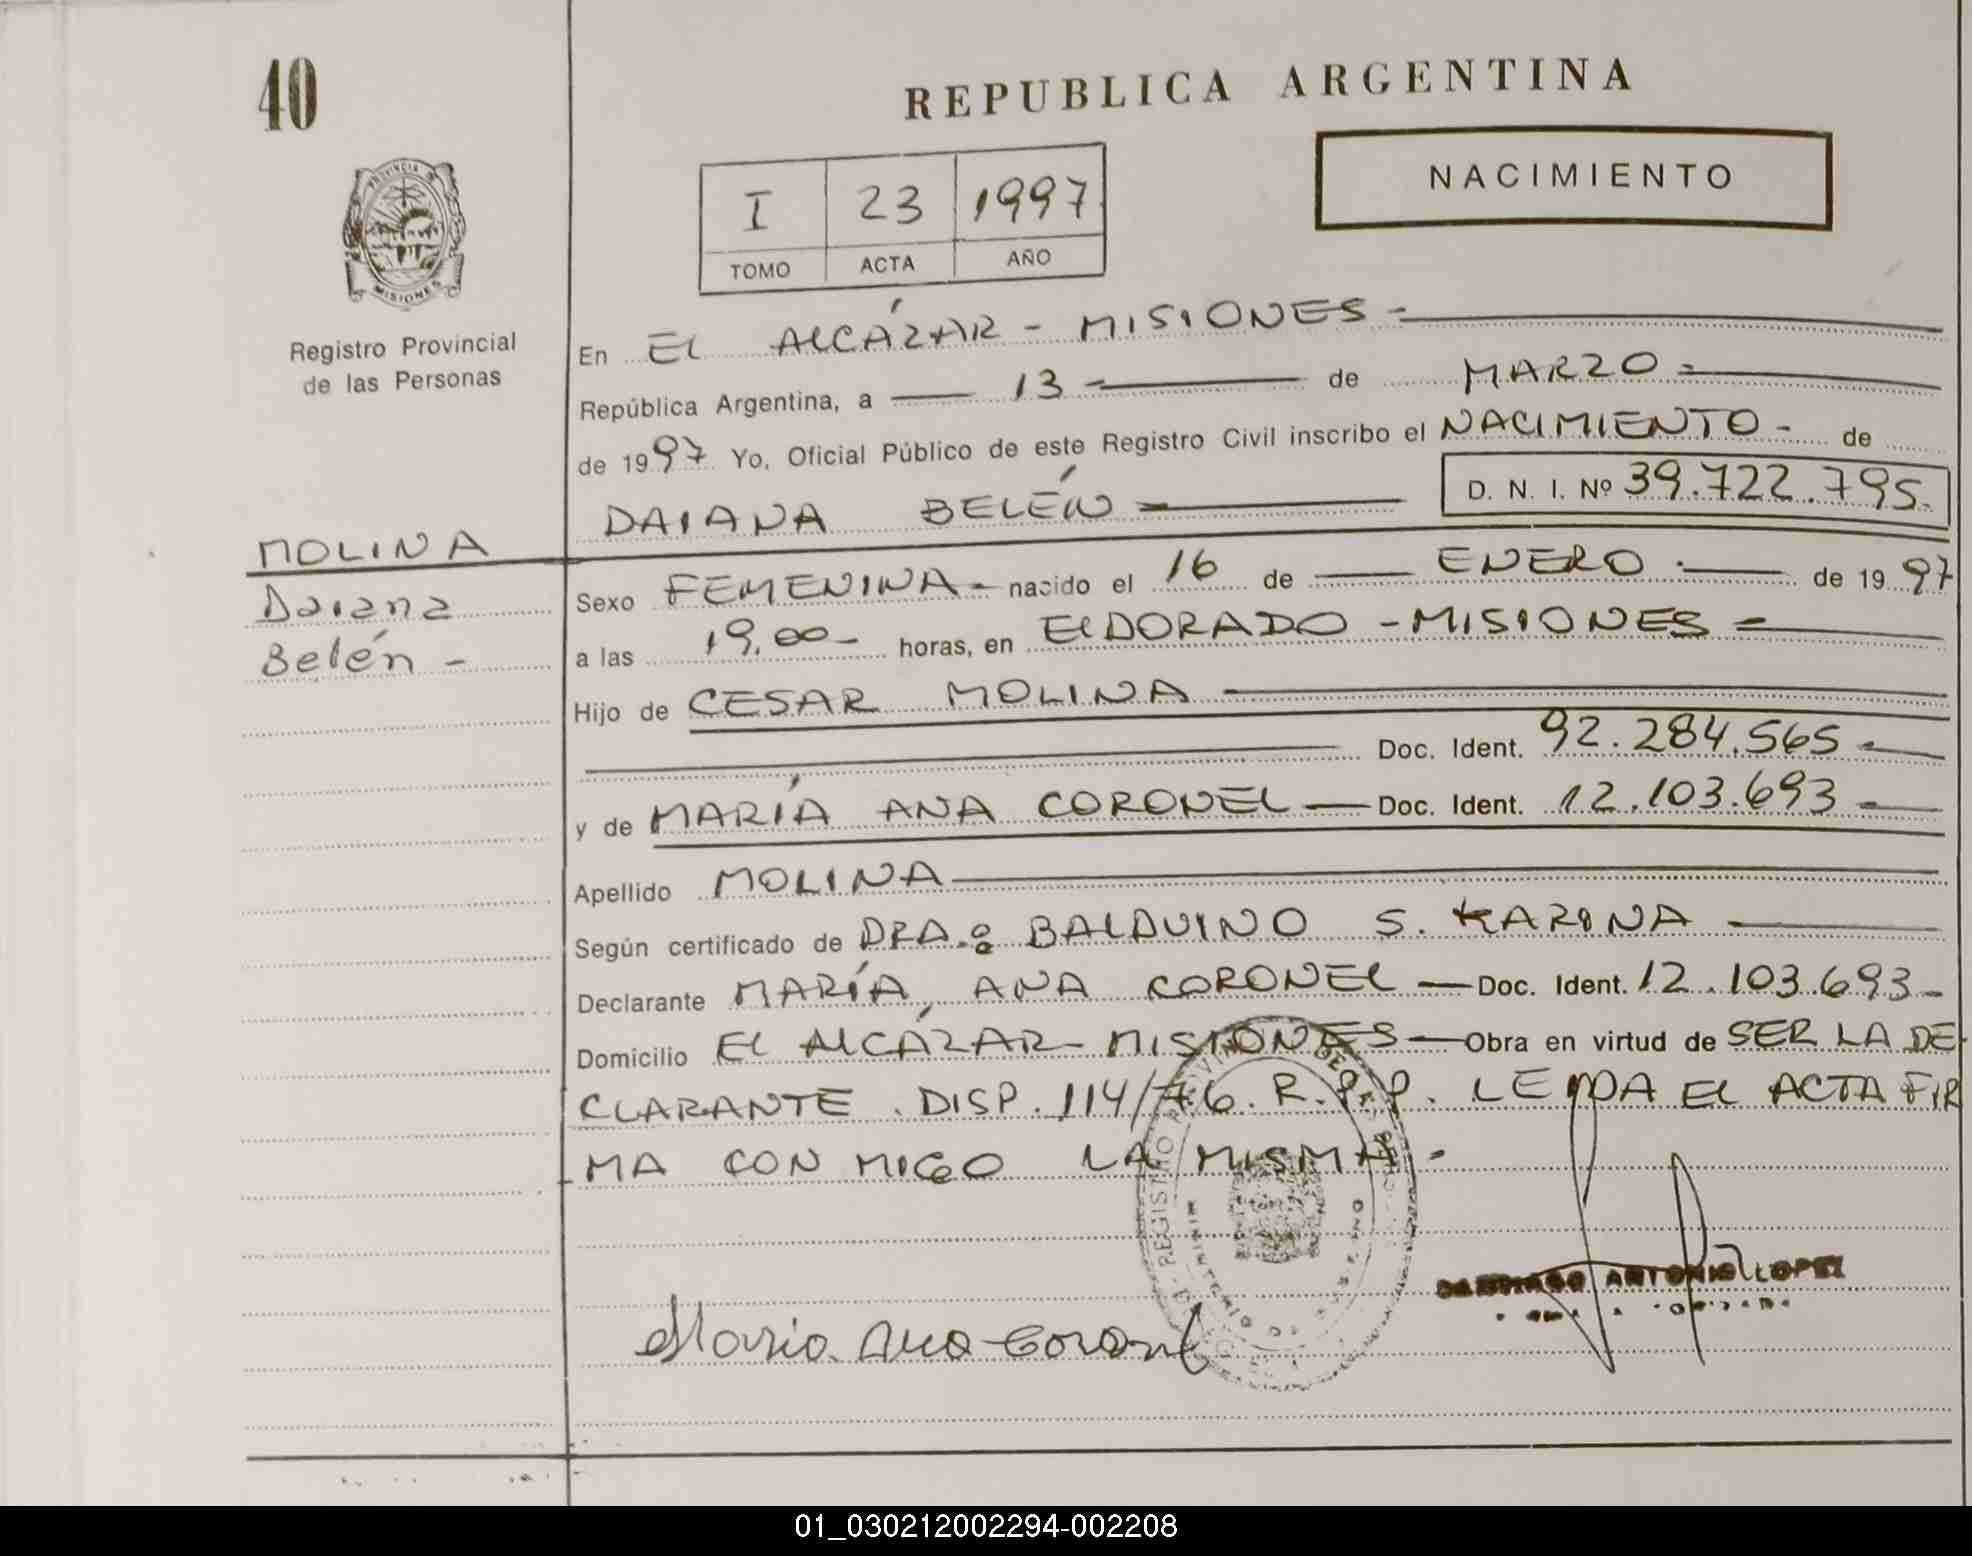 40
REPUBLICA ARGENTINA
NACIMIENTO
I 23 1997
TOMO ACTA AÑO
PROVINCIA DE
MISIONES
Registro Provincial
de las Personas
En EL ALCÁZAR - MISIONES -
República Argentina, a 13 de MARZO
de 1997 Yo, Oficial Público de este Registro Civil inscribo el NACIMIENTO - de
DAIANA BELÉN D. N. I. Nº 39.722.795.
MOLINA
Daiana
Belén -
Sexo FEMENINA - nacido el 16 de ENERO de 1997
a las 19,00 - horas, en ELDORADO - MISIONES -
Hijo de CESAR MOLINA
Doc. Ident. 92.284.565 -
y de MARÍA ANA CORONEL - Doc. Ident. 12.103.693 -
Apellido MOLINA
Según certificado de DRA.: BALDUINO S. KARINA
Declarante MARÍA ANA CORONEL - Doc. Ident. 12.103.693 -
Domicilio EL ALCÁZAR - MISIONES - Obra en virtud de SER LA DE
CLARANTE . DISP. 114/76. R.P.P. LEIDA EL ACTA FIR
MA CON MIGO LA MISMA -
ANTONIO LOPEZ
Maria Ana Coronel
01_030212002294-002208